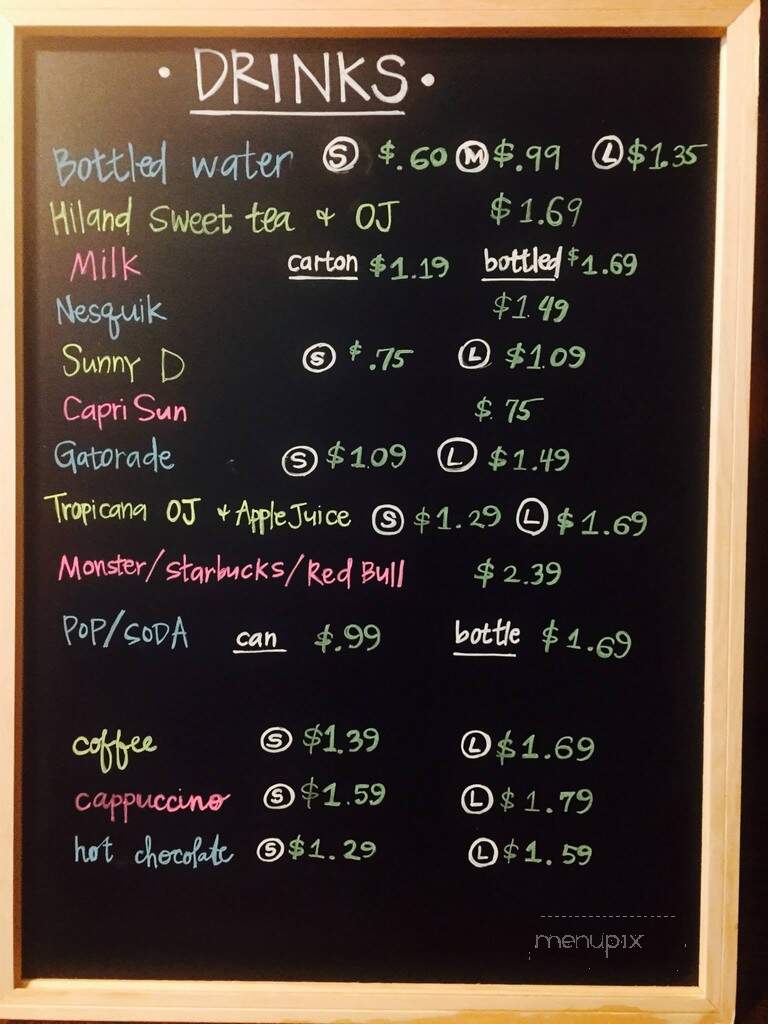 • DRINKS •
Bottled water Ⓢ $.60 Ⓜ $.99 Ⓛ $1.35
Hiland Sweet tea + OJ $1.69
Milk carton $1.19 bottled $1.69
Nesquik $1.49
Sunny D Ⓢ $.75 Ⓛ $1.09
Capri Sun $.75
Gatorade Ⓢ $1.09 Ⓛ $1.49
Tropicana OJ + Apple Juice Ⓢ $1.29 Ⓛ $1.69
Monster/starbucks/Red Bull $2.39
POP/SODA can $.99 bottle $1.69
coffee Ⓢ $1.39 Ⓛ $1.69
cappuccino Ⓢ $1.59 Ⓛ $1.79
hot chocolate Ⓢ $1.29 Ⓛ $1.59
menupix